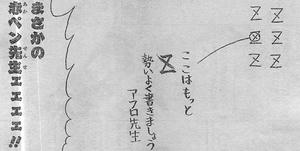 Z Z
Z Z
Z Z
ここはもっと
Z
勢いよく書きましょう
アフロ先生
まさかの
赤ペン先生ェェェェ!!
あか
せんせ